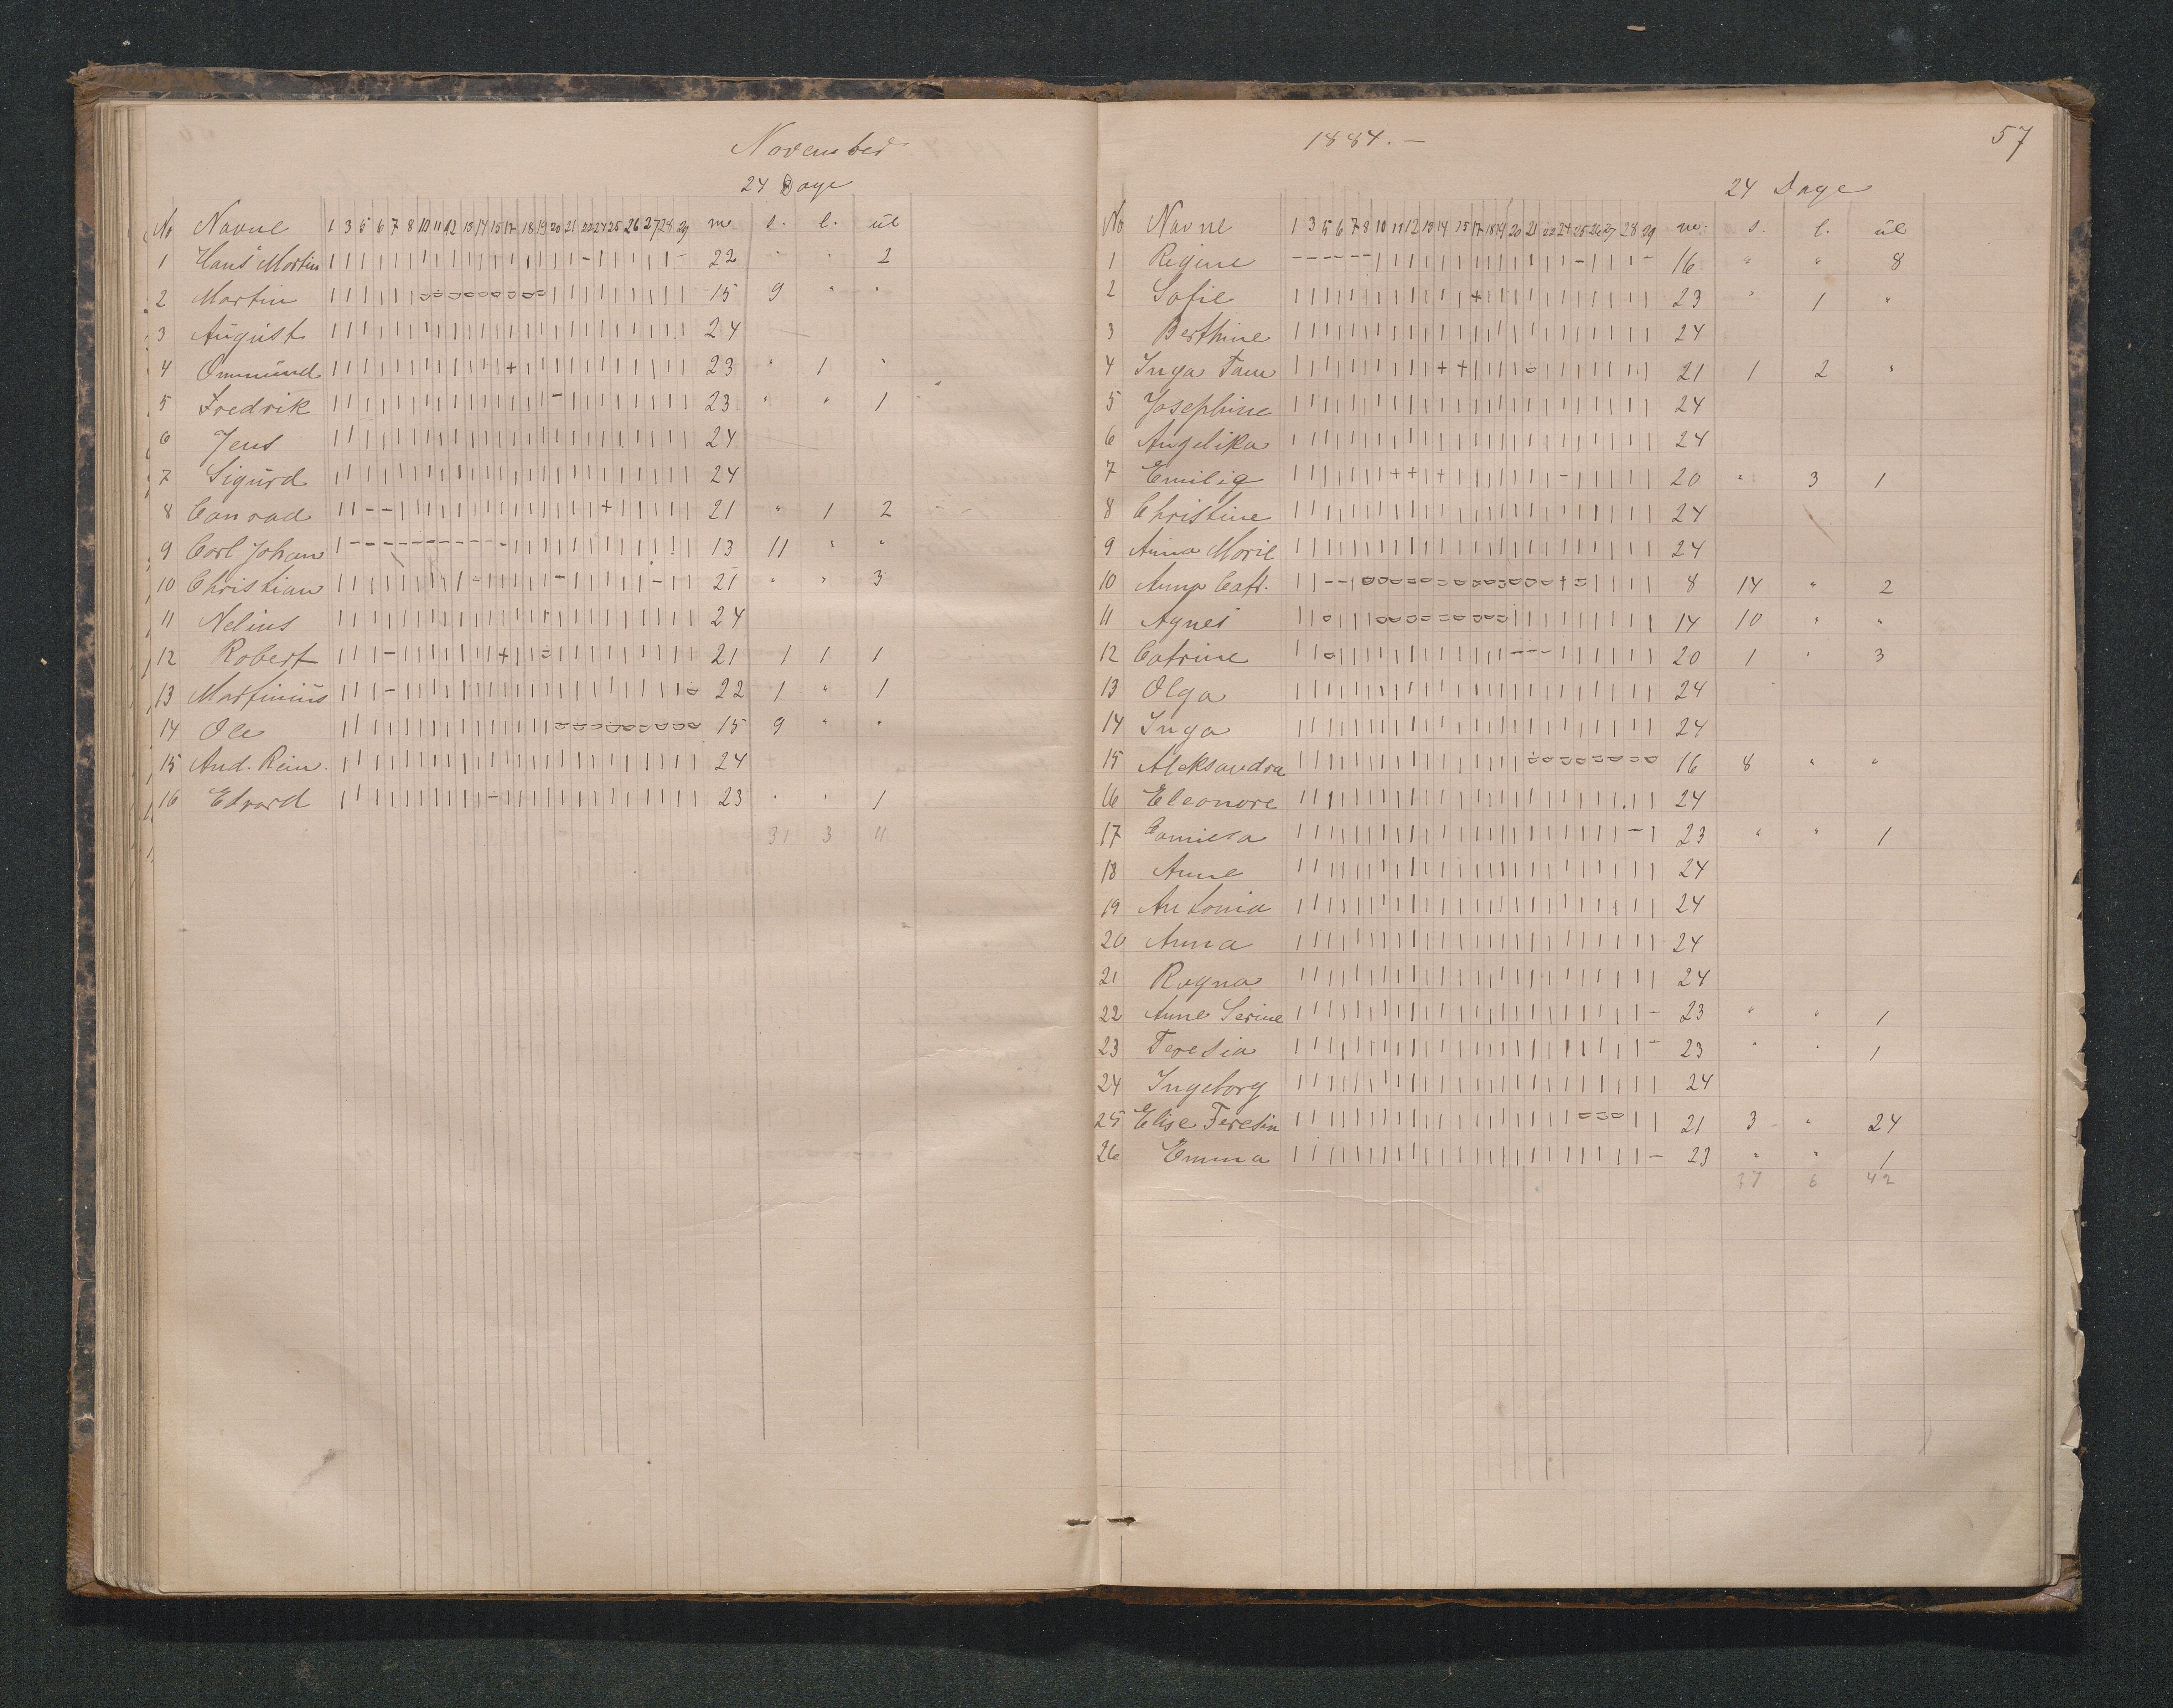 November
24 Dage
No Navne 1 3 5 6 7 8 10 11 12 13 14 15 17 18 19 20 21 22 24 25 26 27 28 29 m. s. l. ul
1 Hans Martin 22 " " 2
2 Martin 15 9 " "
3 August 24
4 Ommund 23 " 1 "
5 Fredrik 23 " " 1
6 Jens 24
7 Sigurd 24
8 Conrad 21 " 1 2
9 Carl Johan 13 11 " "
10 Christian 21 " " 3
11 Nelius 24
12 Robert 21 1 1 1
13 Martinius 22 1 " 1
14 Ole 15 9 " "
15 And. Rein. 24
16 Edvard 23 " " 1
31 3 11
1884. —
57
24 Dage
No Navne 1 3 5 6 7 8 10 11 12 13 14 15 17 18 19 20 21 22 24 25 26 27 28 29 m. s. l. ul
1 Regine 16 " " 8
2 Sofie 23 " 1 "
3 Berthine 24
4 Inga Tam 21 1 2 "
5 Josephine 24
6 Angelika 24
7 Emilie 20 " 3 1
8 Christine 24
9 Anna Marie 24
10 Anna Cath. 8 14 " 2
11 Agnes 14 10 " "
12 Catrine 20 1 " 3
13 Olga 24
14 Inga 24
15 Aleksandra 16 8 " "
16 Eleonore 24
17 Camilla 23 " " 1
18 Anne 24
19 Antonia 24
20 Anna 24
21 Ragna 24
22 Anne Serine 23 " " 1
23 Teresia 23 " " 1
24 Ingeborg 24
25 Elise Teresia 21 3 " 24
26 Emma 23 " " 1
37 6 42